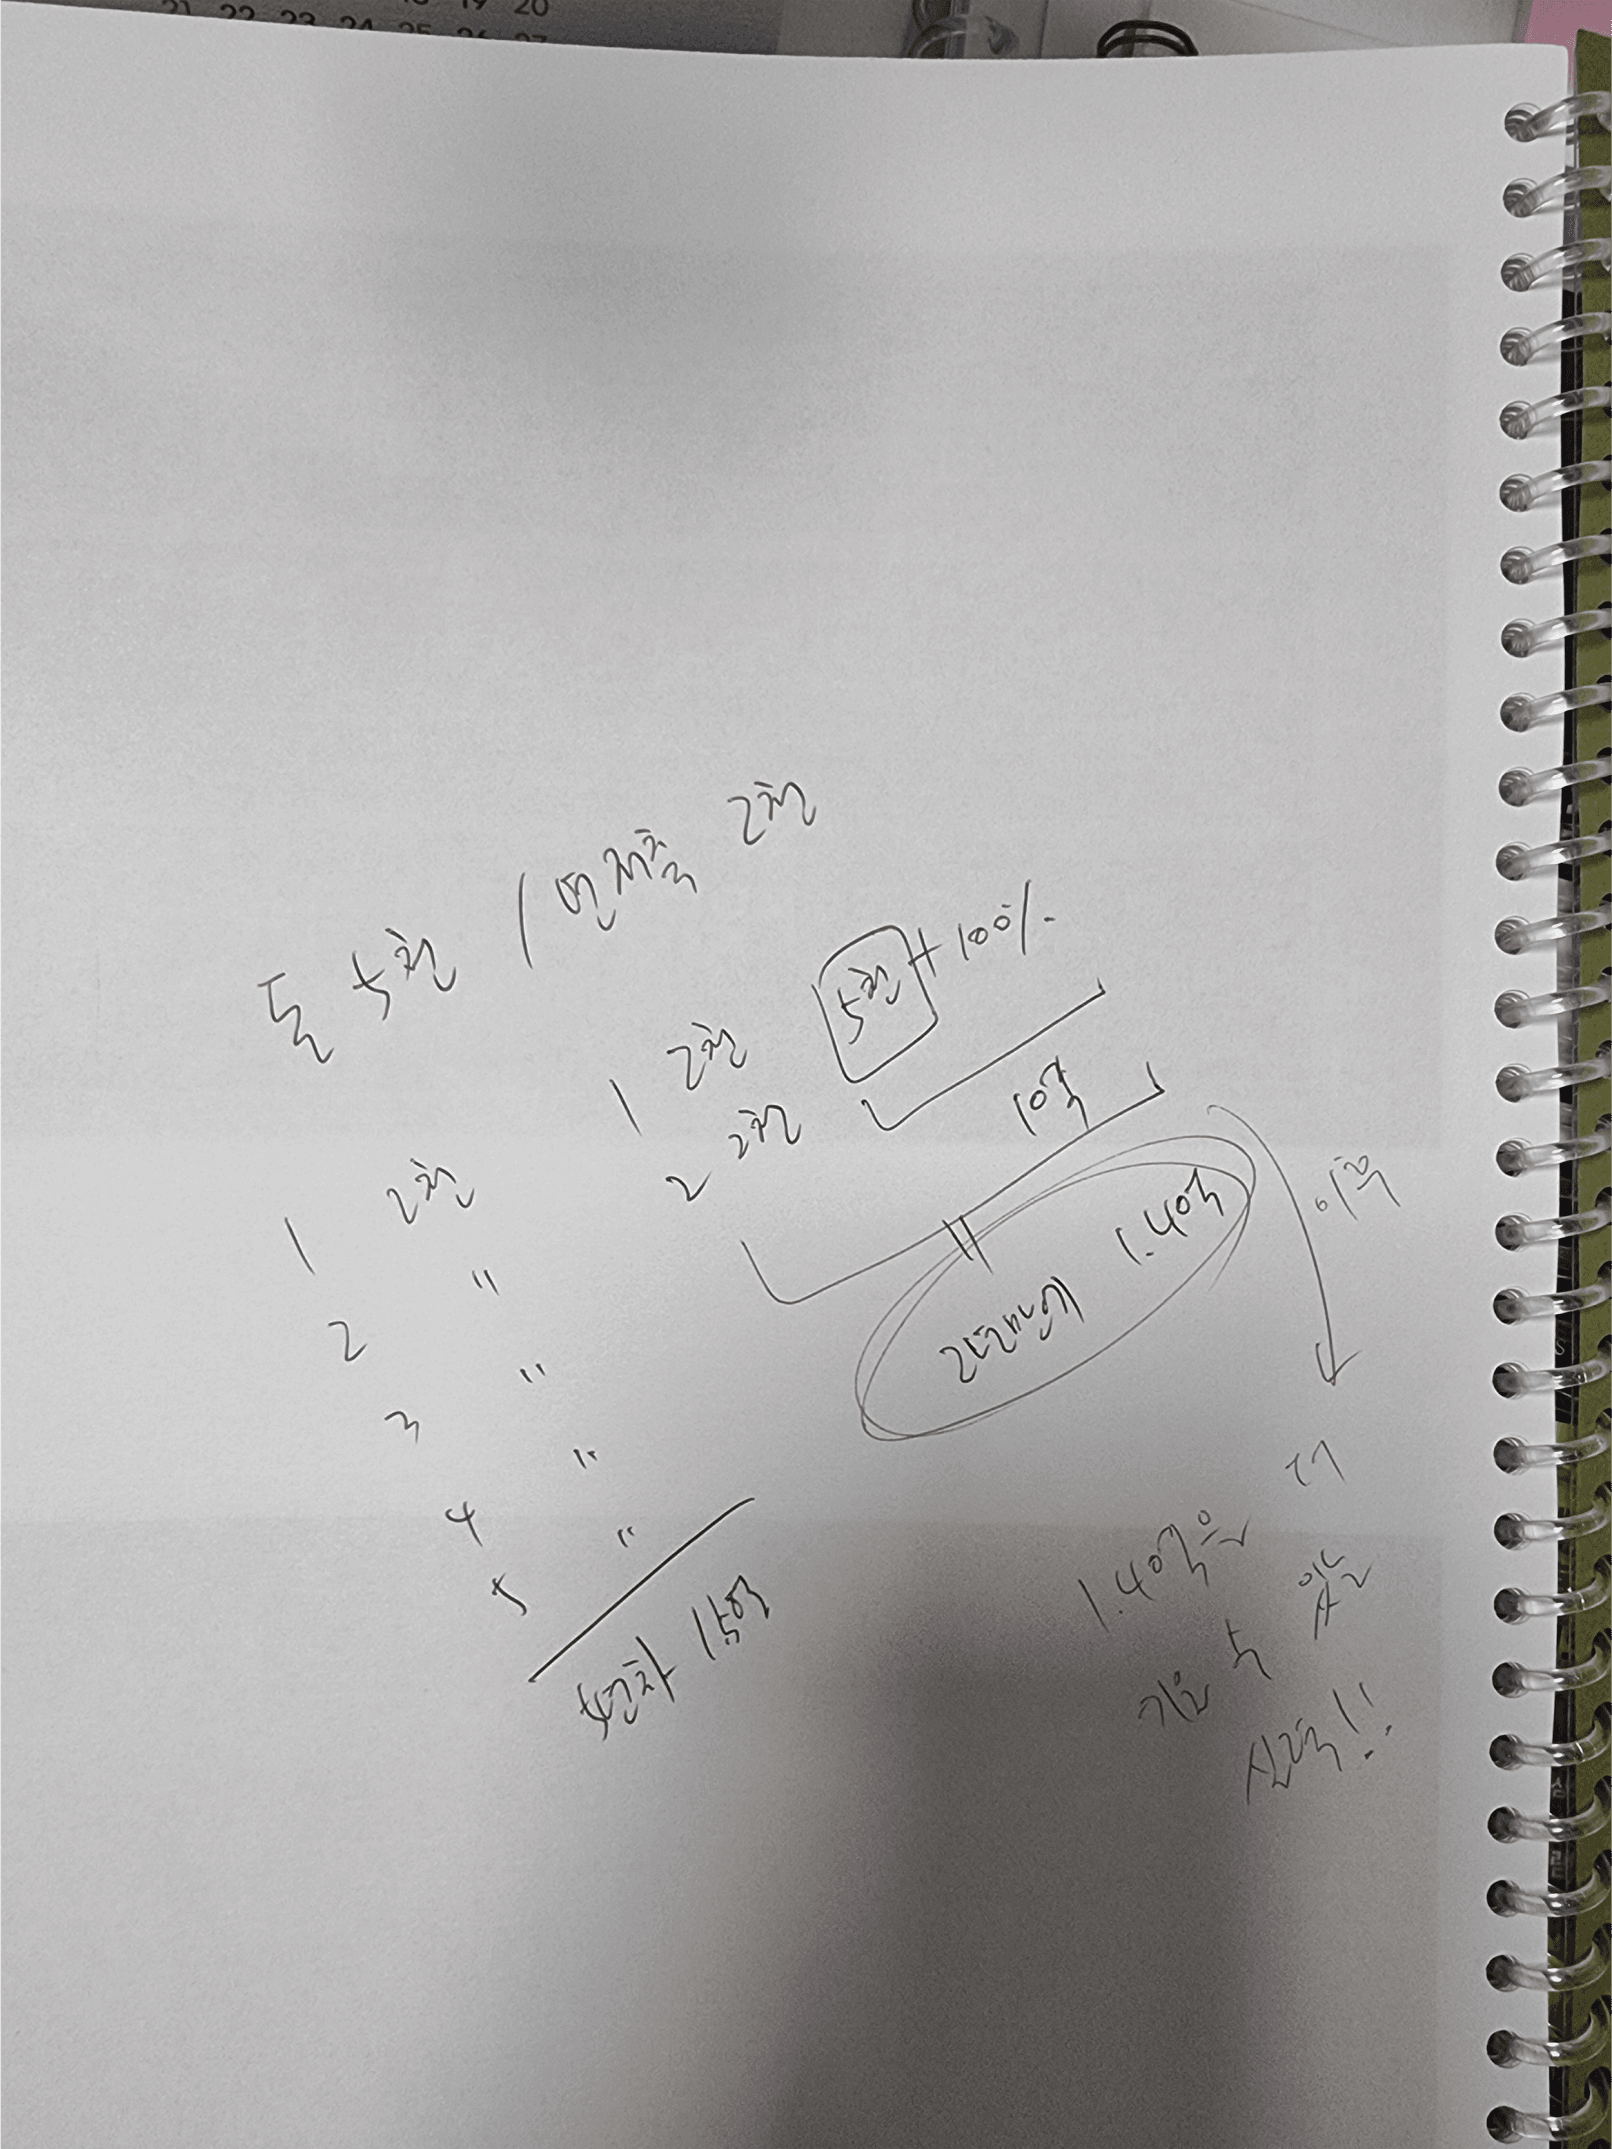 18 19 20
21 22 23 24 25 26 27
돈 5천 / 연저축 2천
1 2천
2 "
3 "
4 "
5 "
5년차 1.5억
1 2천
2 2천
5천 + 100%
10억
||
2년만에 1.4억
이후
1.4억은 더
키울 수 있는
실력!!